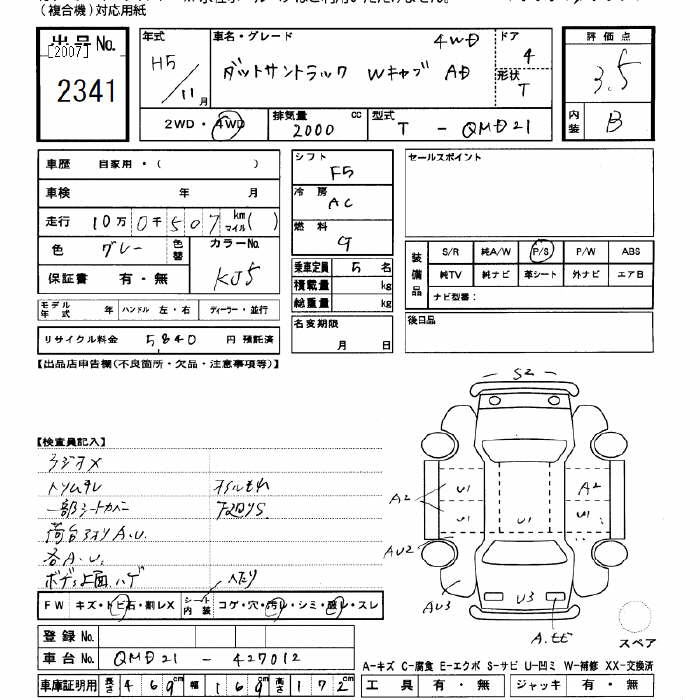 (複合機)対応用紙
出品No.
[2007]
2341
年式
H5/11月
車名・グレード
4WD
ダットサントラック Wキャブ AD
ドア
4
形状
T
2WD・4WD
排気量 2000 cc
型式 T - QMD21
評価点
3.5
内装 B
車歴 自家用・( )
車検 年 月
走行 10万0千507 km マイル( )
色 グレー 色替 カラーNo. KJ5
保証書 有・無
モデル年式 年 ハンドル 左・右 ディーラー・並行
リサイクル料金 5,840 円 預託済
シフト F5
冷房 AC
燃料 G
乗車定員 5 名
積載量 kg
総重量 kg
名変期限
月 日
セールスポイント
装備品
S/R 純A/W P/S P/W ABS
純TV 純ナビ 革シート 外ナビ エアB
ナビ型番:
後日品
【出品店申告欄(不良箇所・欠品・注意事項等)】
【検査員記入】
ラジオメ
トリムヤレ オイルモレ
一部シートカバー 下廻りS.
荷台アオリA.U.
各A.U.
ボデー上面ハゲ ヘタリ
FW キズ・トビ石・割レX シート内装 コゲ・穴・汚レ・シミ・破レ・スレ
登録No.
車台No. QMD21 - 427012
車庫証明用 長さ 469cm 幅 169cm 高さ 172cm
S2
A2
U1
U1
A2
U1
U1
AU2
AU3
U3
A.サビ
スペア
A-キズ C-腐食 E-エクボ S-サビ U-凹ミ W-補修 XX-交換済
工具 有・無 ジャッキ 有・無